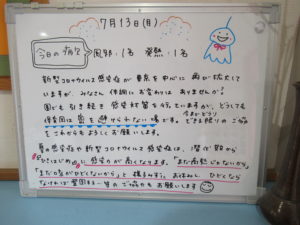 7月13日(月)
今日の病欠 風邪:1名 発熱:1名
新型コロナウイルス感染症が 東京を中心に 再び拡大して
いますが、みなさん 体調に お変わりは ありませんか?
園でも 引き続き 感染対策を 行っていますが、どうしても
保育園は 密を 避けられない 場です。できる限りの ご協力
を これからも よろしく お願いします。
夏の感染症や 新型コロナウイルス 感染症は、潜伏期から
感染力が 高くなります。「まだ高熱じゃないから」
「まだ咳がひどくないから」と 様子みず、お休みし
ご協力を お願いします